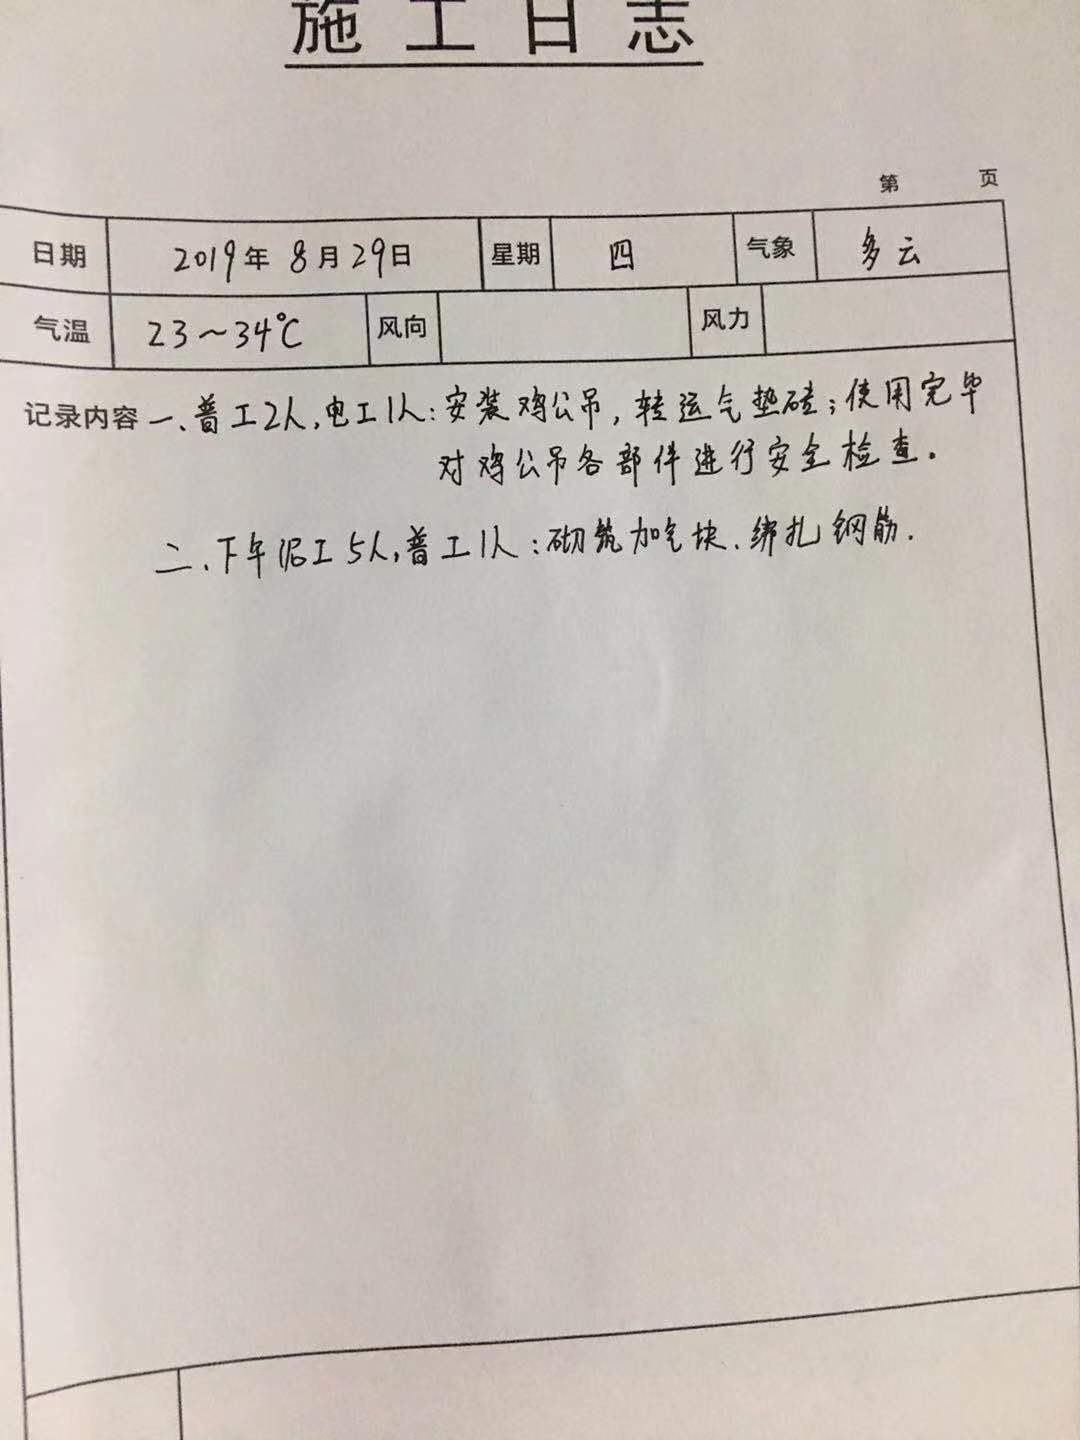 施工日志
第 页
日期 2019年8月29日 星期 四 气象 多云
气温 23～34℃ 风向 风力
记录内容 一、普工2人,电工1人:安装鸡公吊,转运气垫砖;使用完毕
对鸡公吊各部件进行安全检查。
二、下午泥工5人,普工1人:砌筑加气块、绑扎钢筋.